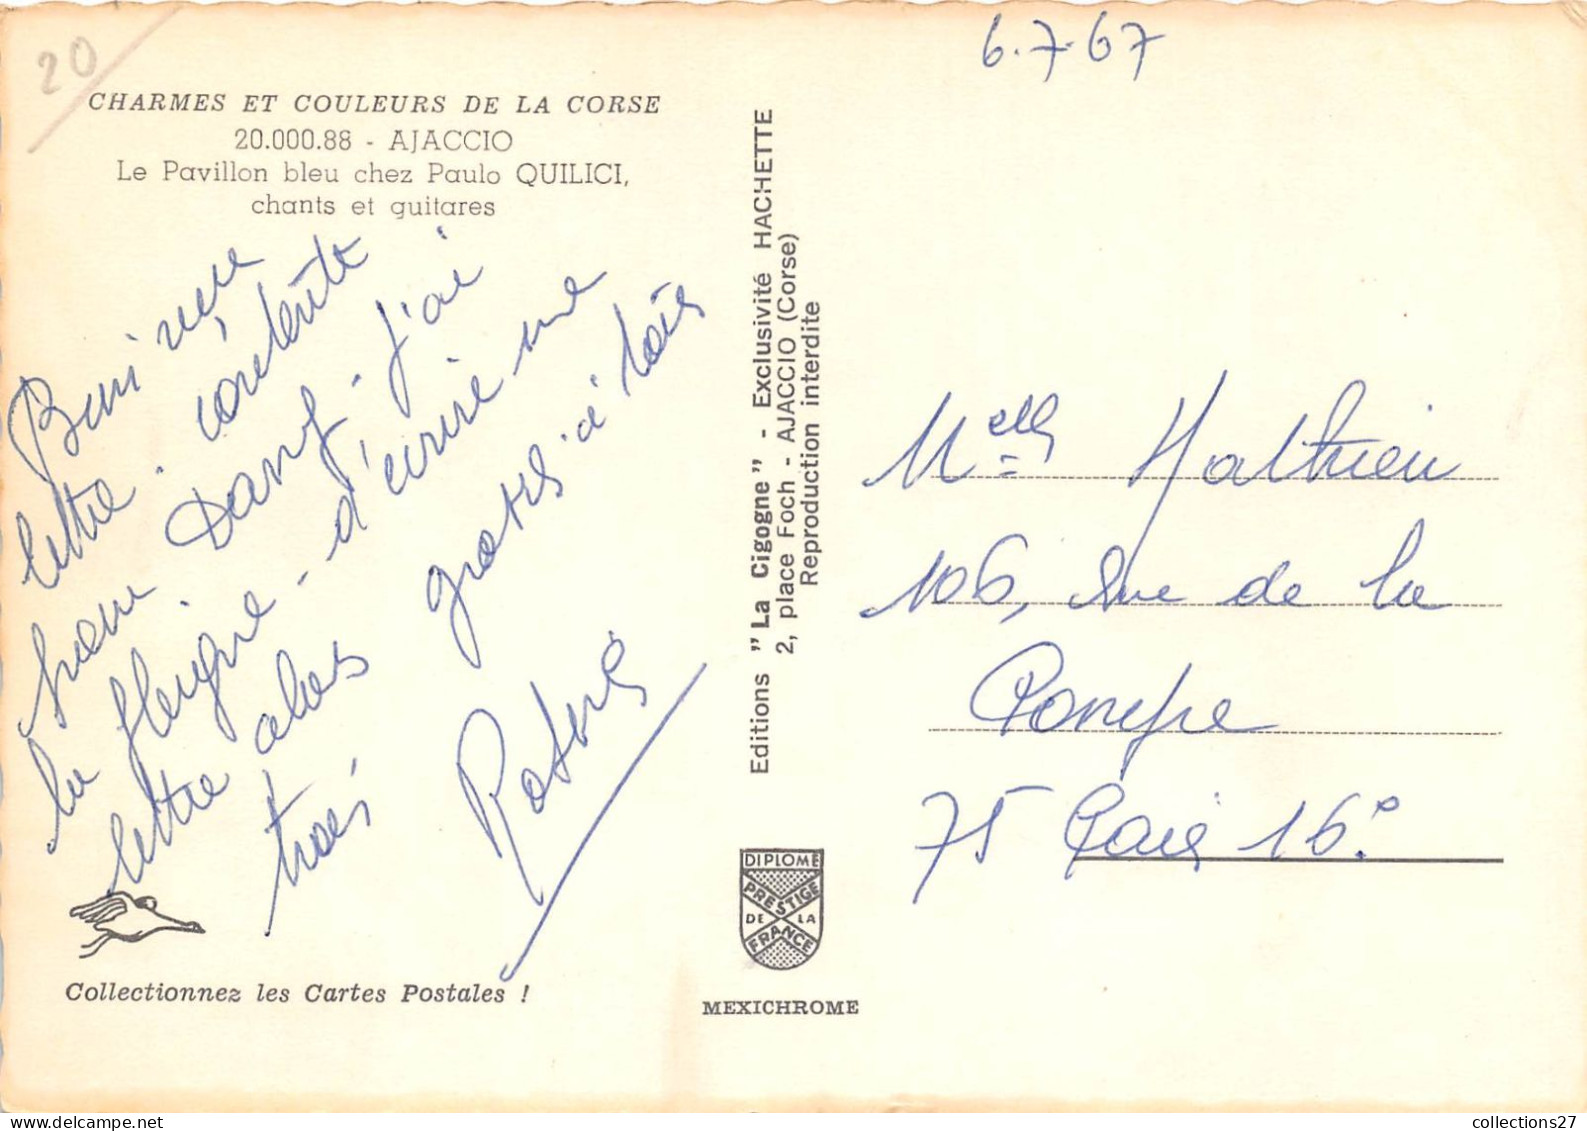 20
6.7.67
CHARMES ET COULEURS DE LA CORSE
20.000.88 - AJACCIO
Le Pavillon bleu chez Paulo QUILICI,
chants et guitares
Bien reçu
lettre. contente
pour Danf. j'ai
la flemme - d'écrire une
lettre alors gratis. à
trois
Editions "La Cigogne" - Exclusivité HACHETTE
2, place Foch - AJACCIO (Corse)
Reproduction interdite
Melle Mathieu
106, Rue de la
Pompe
75 Paris 16e.
DIPLOME
PRESTIGE
DE LA
FRANCE
Collectionnez les Cartes Postales !
MEXICHROME
collections27